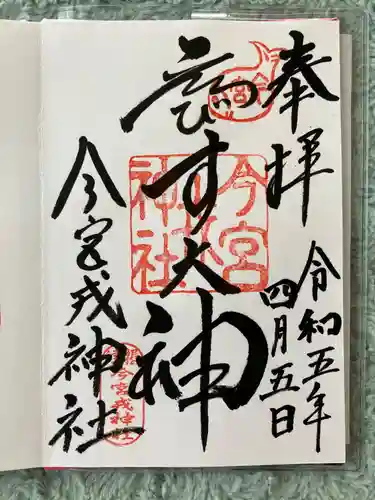 奉拝
令和五年
四月五日
ゑびす大神
今宮戎神社
今宮
神社
今宮戎神社